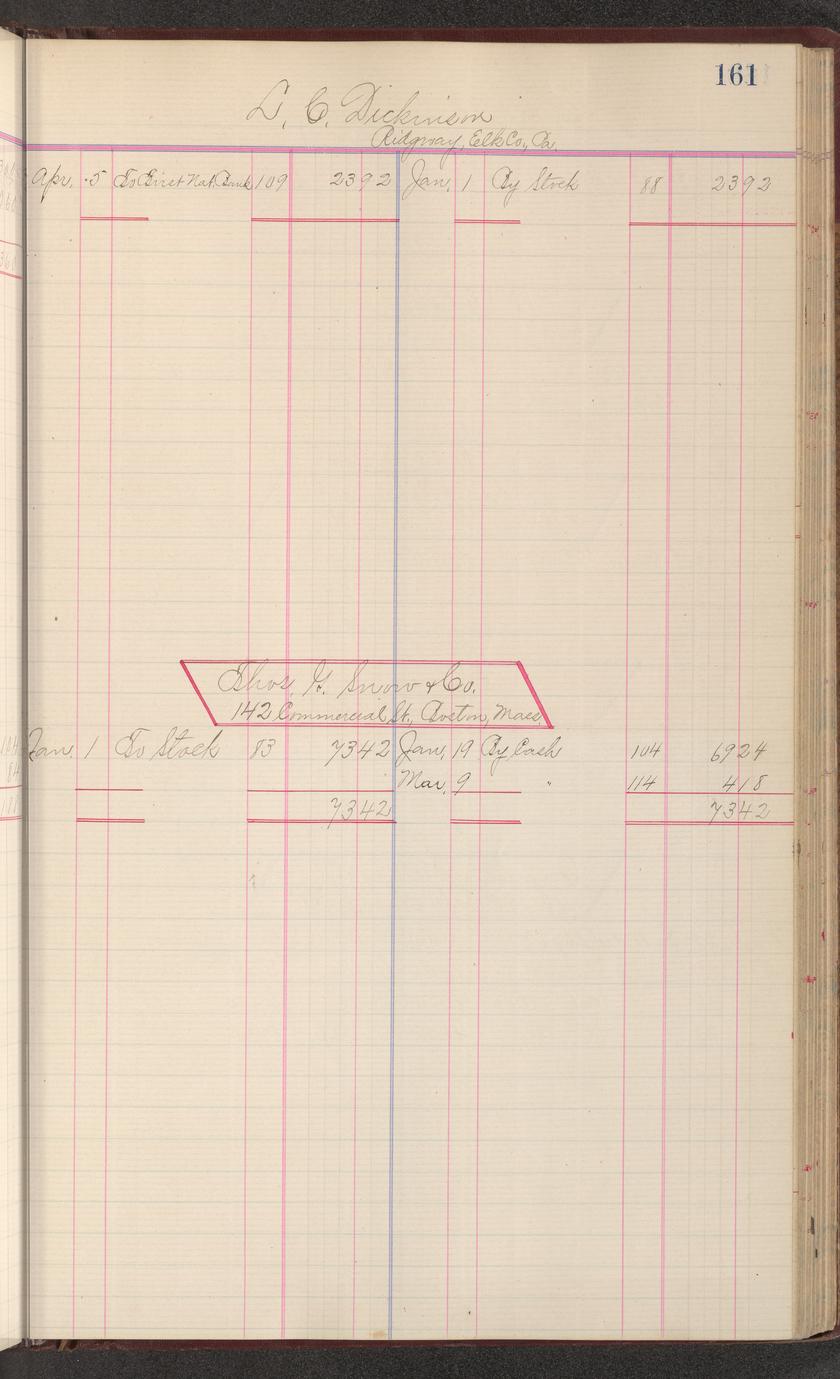 161
L. C. Dickinson
Ridgway, Elk Co., Pa.
Apr. 5 To First Nat. Bank 109 2392 Jan. 1 By Stock 88 2392
Thos. G. Snow & Co.
142 Commercial St., Boston, Mass.
Jan. 1 To Stock 83 7342 Jan. 19 By Cash 104 6924
Mar. 9 " 114 418
7342 7342